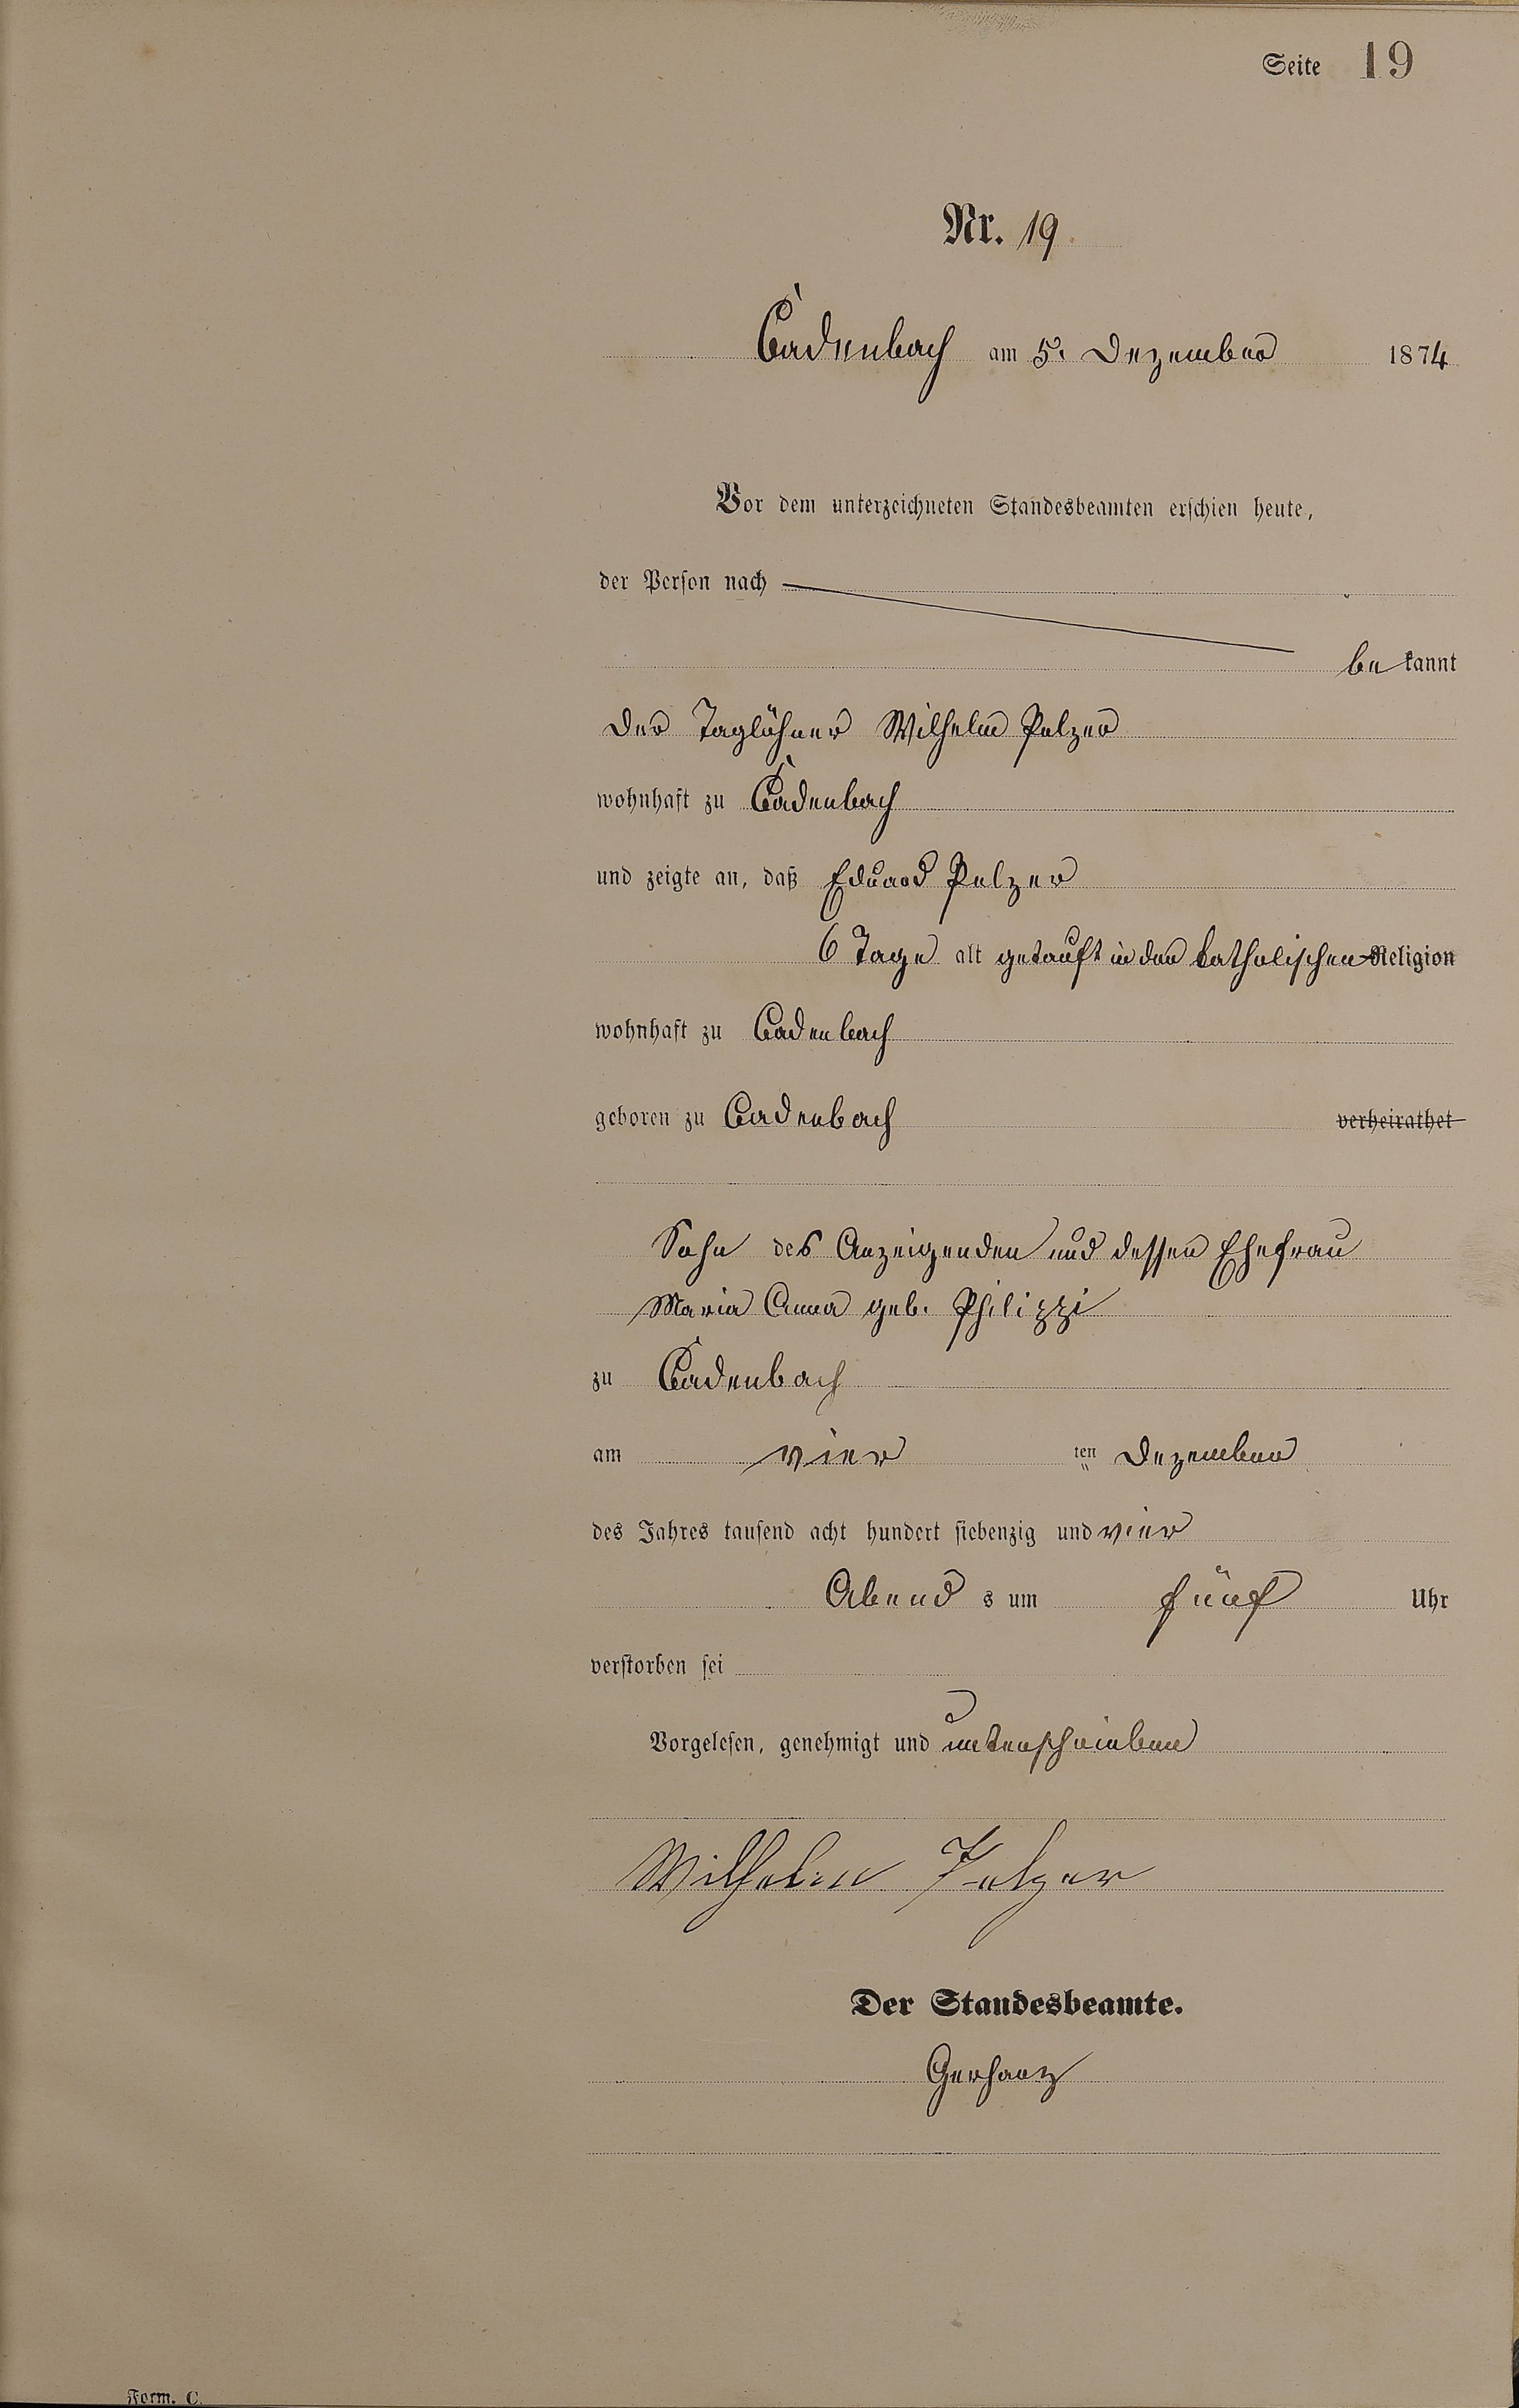 Seite 19
Nr. 19.
Cadenbach am 5. Dezember 1874
Vor dem unterzeichneten Standesbeamten erschien heute,
der Person nach
be kannt
der Taglöhner Wilhelm Pelzer
wohnhaft zu Cadenbach
und zeigte an, daß Eduard Pelzer
6 Tage alt getauft in der katholischen Religion
wohnhaft zu Cadenbach
geboren zu Cadenbach verheirathet
Sohn des Anzeigenden und dessen Ehefrau
Maria Anna geb. Philippi
zu Cadenbach
am vier ten Dezember
des Jahres tausend acht hundert siebenzig und vier
Abend s um fünf Uhr
verstorben sei
Vorgelesen, genehmigt und unterschrieben
Wilhelm Pelzer
Der Standesbeamte.
Gerharz
Form. C.